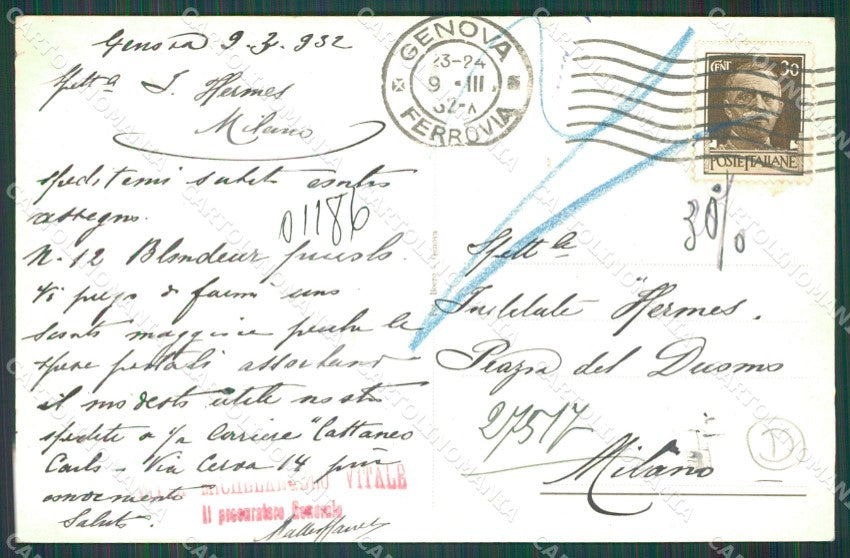 Genova 9.3.932
Spett.le I. Hermes
Milano
Speditemi subito contro
assegno.
N. 12 Blondeur piccolo
Vi prego di farmi uno
sconto maggiore perche le
spese postali assorbano
il modesto utile nostro
spedite a 1/2 Corriere "Cattaneo
Carlo - Via Cerva 14 più
Saluti.
MICHELANGELO VITALE
Il procuratore Generale
01186
GENOVA
23-24
9 ·III·
32·X
FERROVIA
CENT 30
POSTE ITALIANE
30%
Spett.le
Institute "Hermes.
Piazza del Duomo
27517
Milano
CARTOLINOMANIA